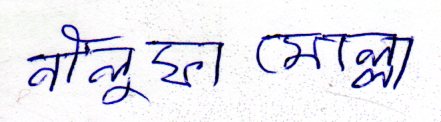 নীলুফা মোল্লা